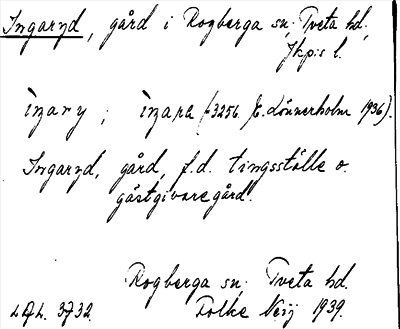 Ingaryd, gård i Rogberga sn, Tveta hd,
Jkp:s l.
ìŋary ; ìŋara (3256. E. Lönnerholm 1936).
Ingaryd, gård, f.d. tingsställe o.
gästgivaregård.
Rogberga sn. Tveta hd.
3732. Folke Neij 1939.